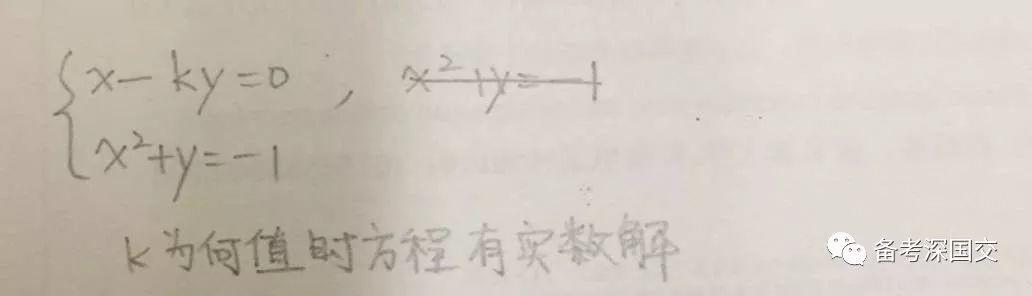 x-ky=0, x²+y=-1
x²+y=-1
k为何值时方程有实数解
备考深国交